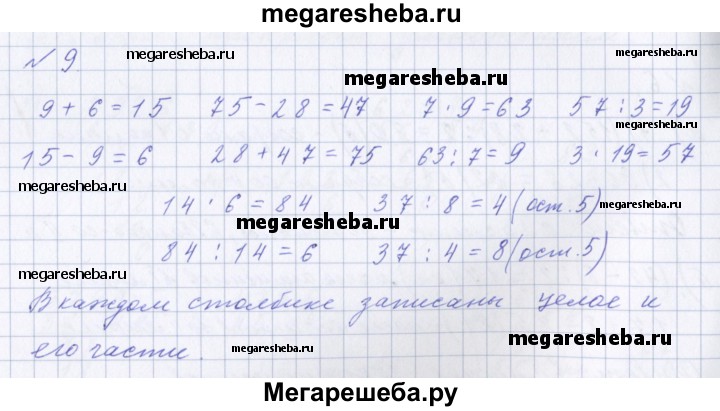 megaresheba.ru
№ 9 megaresheba.ru megaresheba.ru
megaresheba.ru
9 + 6 = 15 75 - 28 = 47 7 · 9 = 63 57 : 3 = 19
megaresheba.ru
15 - 9 = 6 28 + 47 = 75 63 : 7 = 9 3 · 19 = 57
megaresheba.ru
14 · 6 = 84 37 : 8 = 4 (ост. 5) megaresheba.ru
megaresheba.ru
84 : 14 = 6 37 : 4 = 8 (ост. 5)
megaresheba.ru
В каждом столбике записаны целое и
megaresheba.ru
его части. megaresheba.ru
Мегарешеба.ру